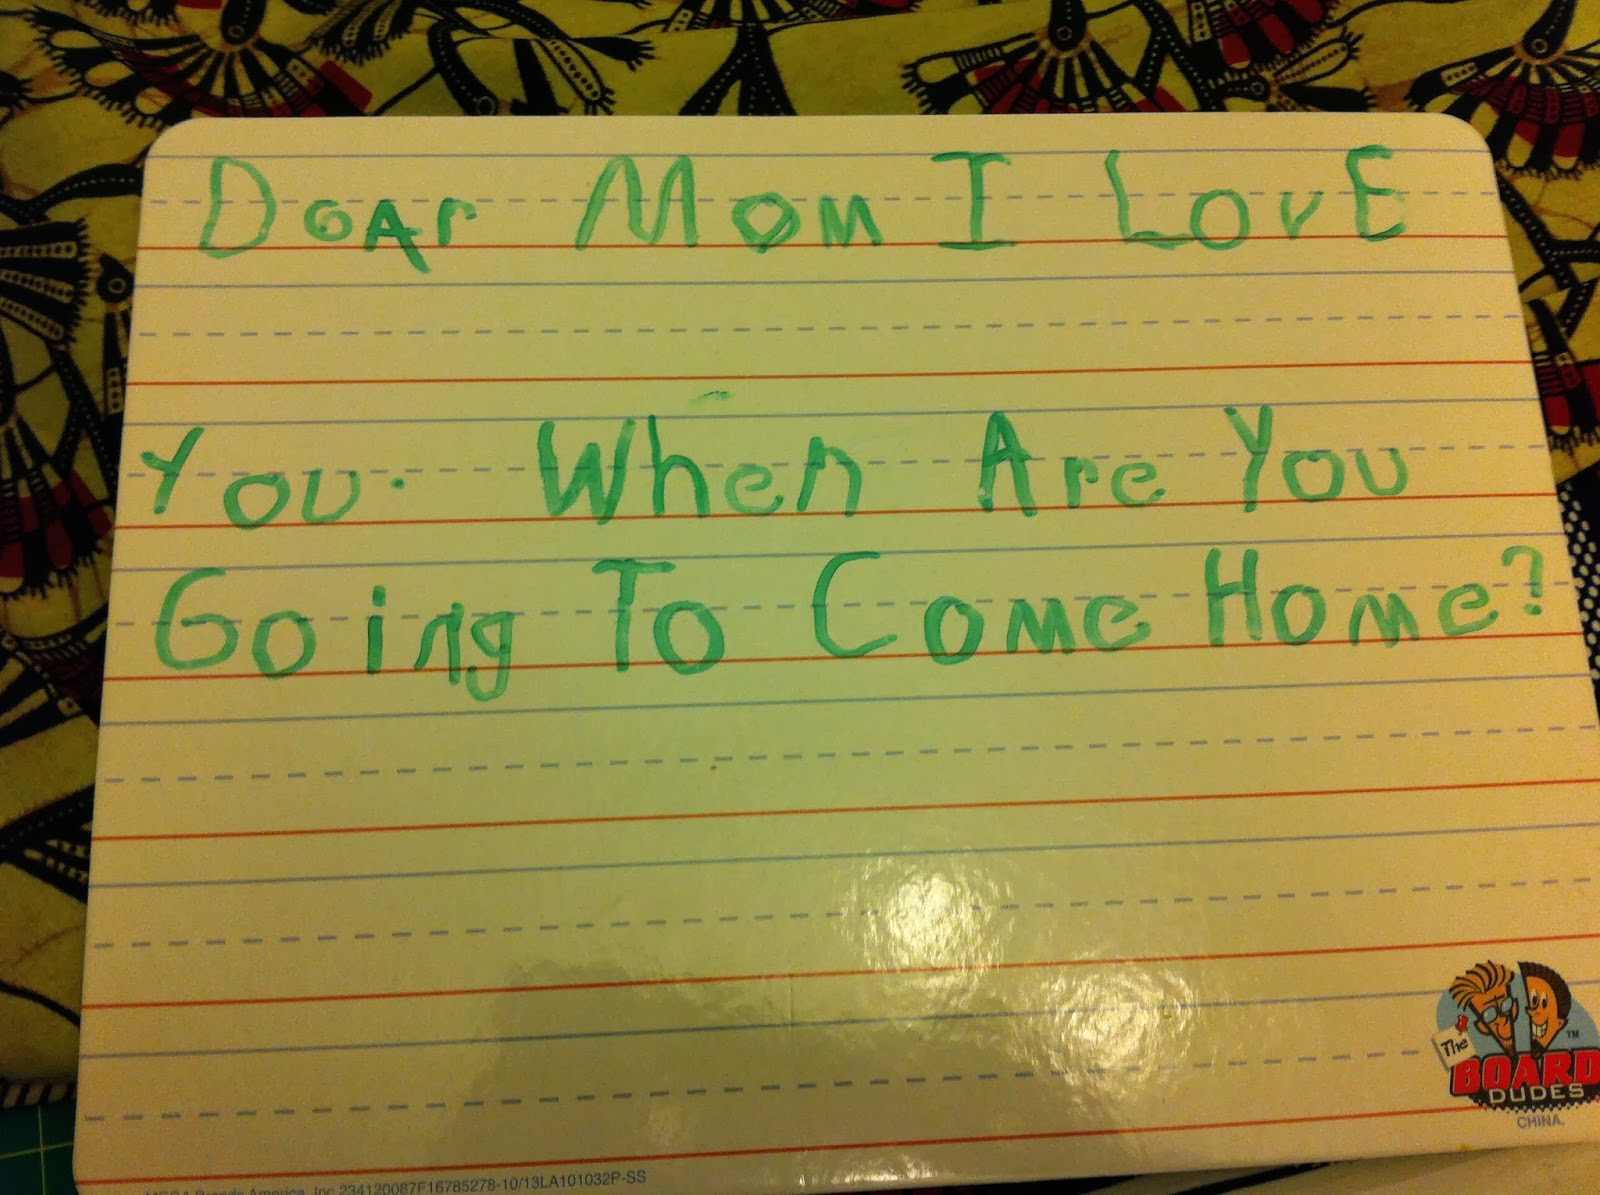 Dear Mom I LovE
You. When Are You
Going To Come Home?
The
BOARD
DUDES
TM
CHINA.
MEGA Brands America, Inc 234120087F16785278-10/13LA101032P-SS